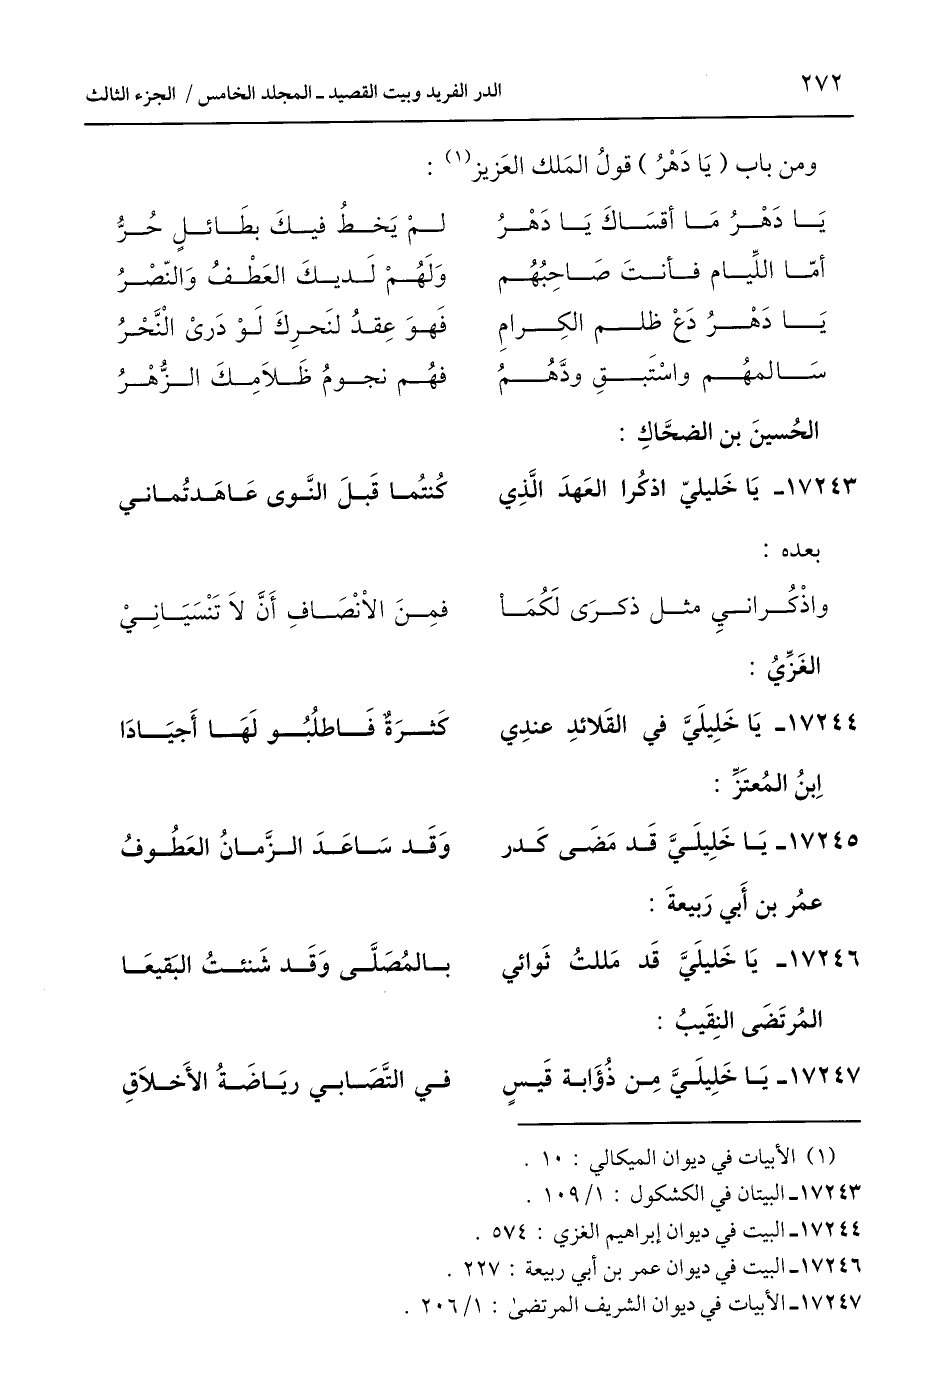 ٢٧٢ الدر الفريد وبيت القصيد ـ المجلد الخامس / الجزء الثالث
ومن باب ( يَا دَهْرُ ) قولُ المَلك العَزيز(١) :
يَــا دَهْــرُ مَــا أقسَــاكَ يَــا دَهْــرُ لــمْ يَخــطُ فيــكَ بطَــائــلٍ حُــرُّ
أمّــا اللِّيــام فــأنــتَ صَــاحِبُهُــم وَلَهُــمْ لَــديــكَ العَطْــفُ وَالنّصْــرُ
يَــا دَهْــرُ دَعْ ظلــم الكِــرامِ فَهوَ عِقدُ لنَحرِكَ لَوْ دَرىْ النَّحْرُ
سَــالمهُــم واسْتَبــقِ ودَّهُــمُ فهُــم نجــومُ ظَــلاَمِــكَ الــزُّهْــرُ
الحُسينَ بن الضحَّاكِ :
١٧٢٤٣ـ يَا خَليليّ اذكُرا العَهدَ الَّذِي كُنتُمــا قَبــلَ النَّــوى عَــاهَــدتُمــانــي
بعده :
واذْكُــرانــي مثــل ذكـرَى لَكُمَــا فمِــنَ الاْنْصَــافِ أَنَّ لاَ تَنْسَيَــانِــيْ
الغَزِّيُ :
١٧٢٤٤ـ يَا خَلِيلَيَّ في القَلائدِ عندِي كَثــرَةٌ فَــاطلُبُــو لَهَــا أَجيَــادَا
اِبنُ المُعتَزِّ :
١٧٢٤٥ـ يَــا خَلِيلَــيَّ قَــد مَضَــى كَــدر وَقَــد سَــاعَــدَ الــزَّمــانُ العَطُــوفُ
عمُر بن أَبي رَبيعةَ :
١٧٢٤٦ـ يَا خَليليَّ قَد مَللتُ ثَوائي بــالمُصَلَّــى وَقَــد شَنئــتُ البَقيعَــا
المُرتَضَى النِقَيبُ :
١٧٢٤٧ـ يَــا خَلِيلَــيَّ مِــن ذُؤَابــة قَيــسٍ فــي التَّصَــابــي ريَــاضَــةُ الأَخــلاَقِ
(١) الأبيات في ديوان الميكالي : ١٠ .
١٧٢٤٣ـ البيتان في الكشكول : ١/ ١٠٩ .
١٧٢٤٤ـ البيت في ديوان إبراهيم الغزي : ٥٧٤ .
١٧٢٤٦ـ البيت في ديوان عمر بن أبي ربيعة : ٢٢٧ .
١٧٢٤٧ـ الأبيات في ديوان الشريف المرتضىٰ : ١/ ٢٠٦ .